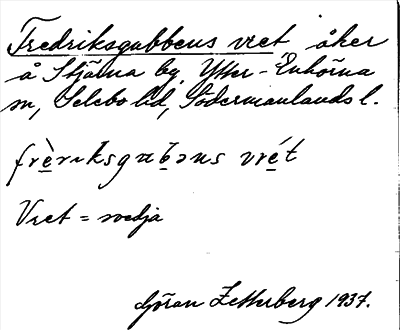 Fredriksgubbens vret åker
å Stjärna by, Ytter-Enhörna
sn, Selebo hd, Södermanlands l.
frèriksgubəns vrét
Vret = svedja
Göran Zetterberg 1937.